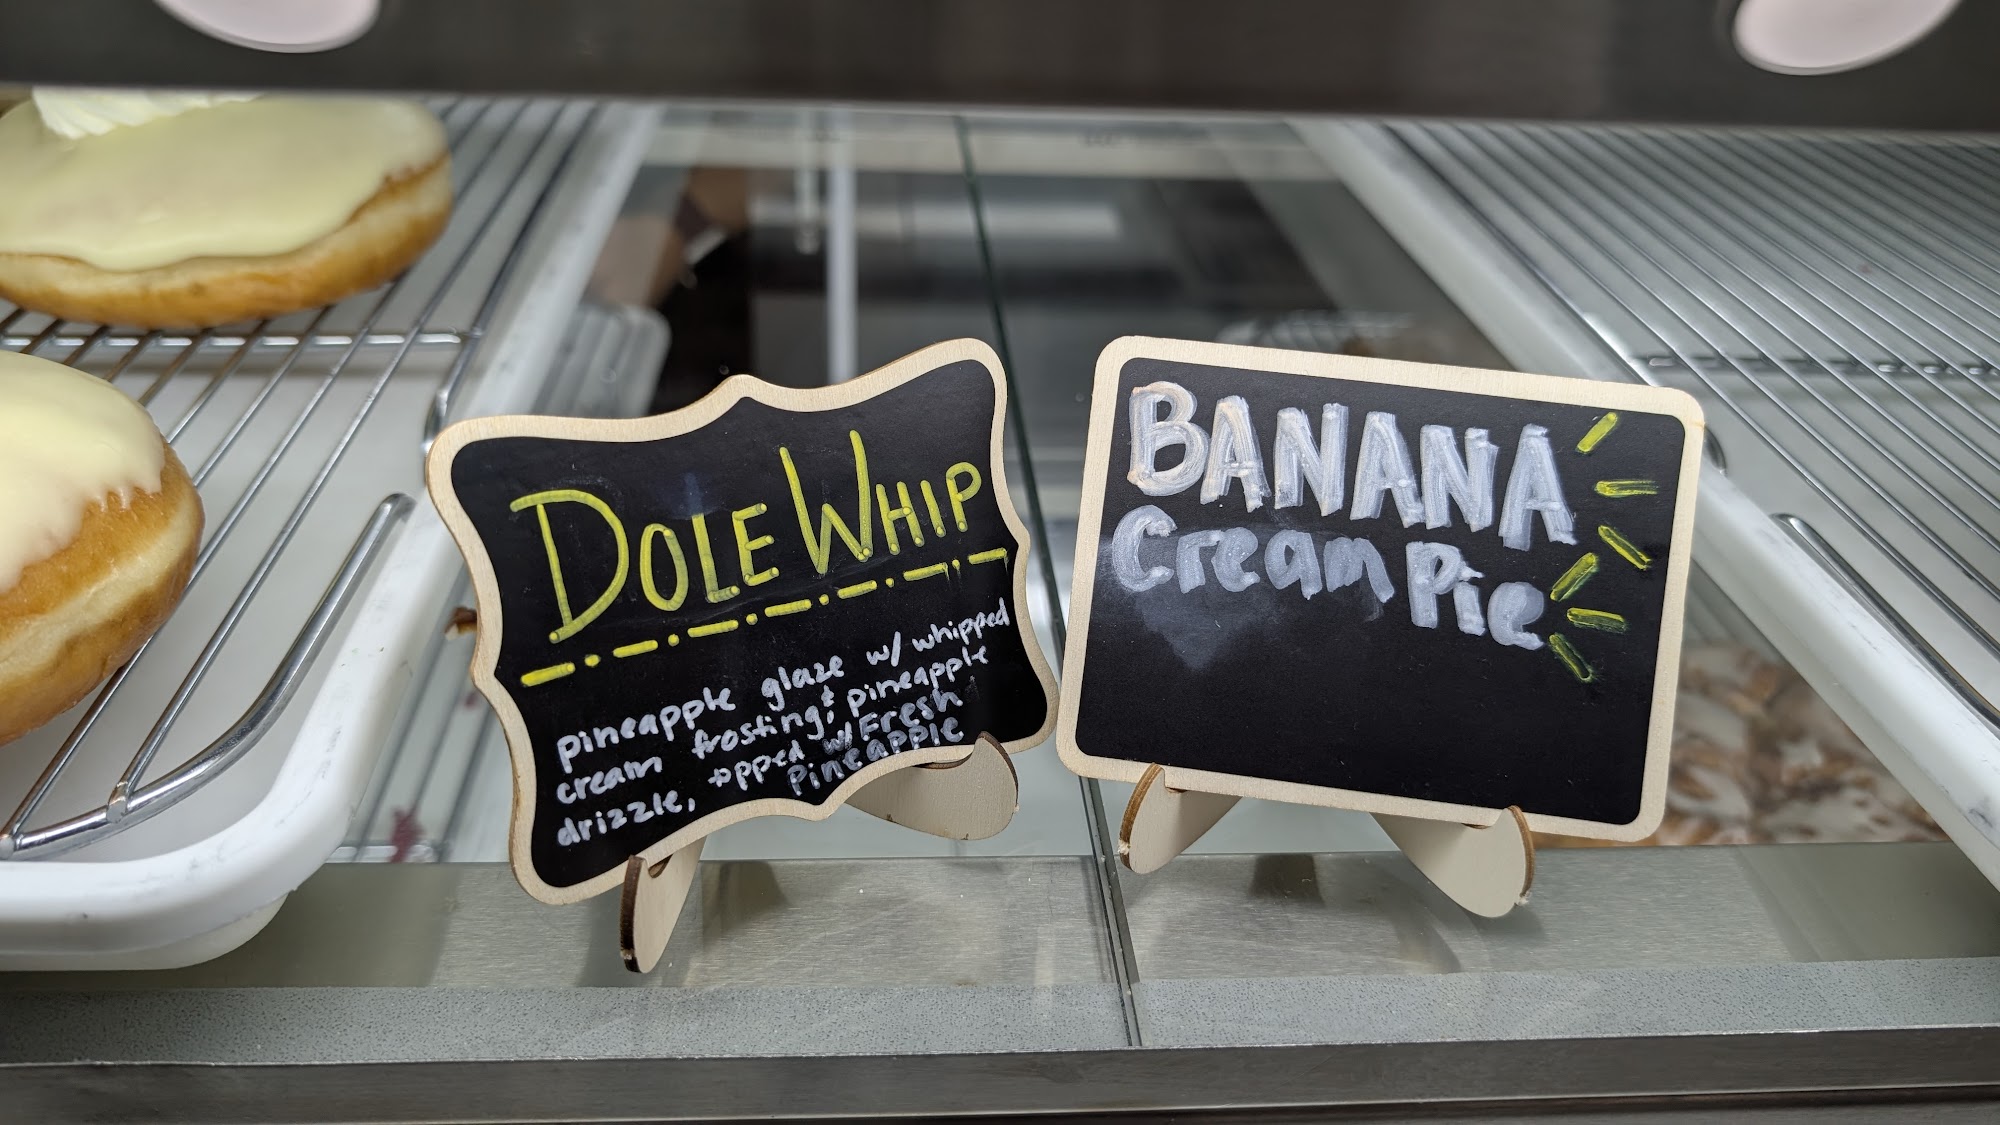 DOLE WHIP
pineapple glaze w/ whipped
cream frosting & pineapple
drizzle, topped w/ Fresh
Pineapple
BANANA
Cream Pie